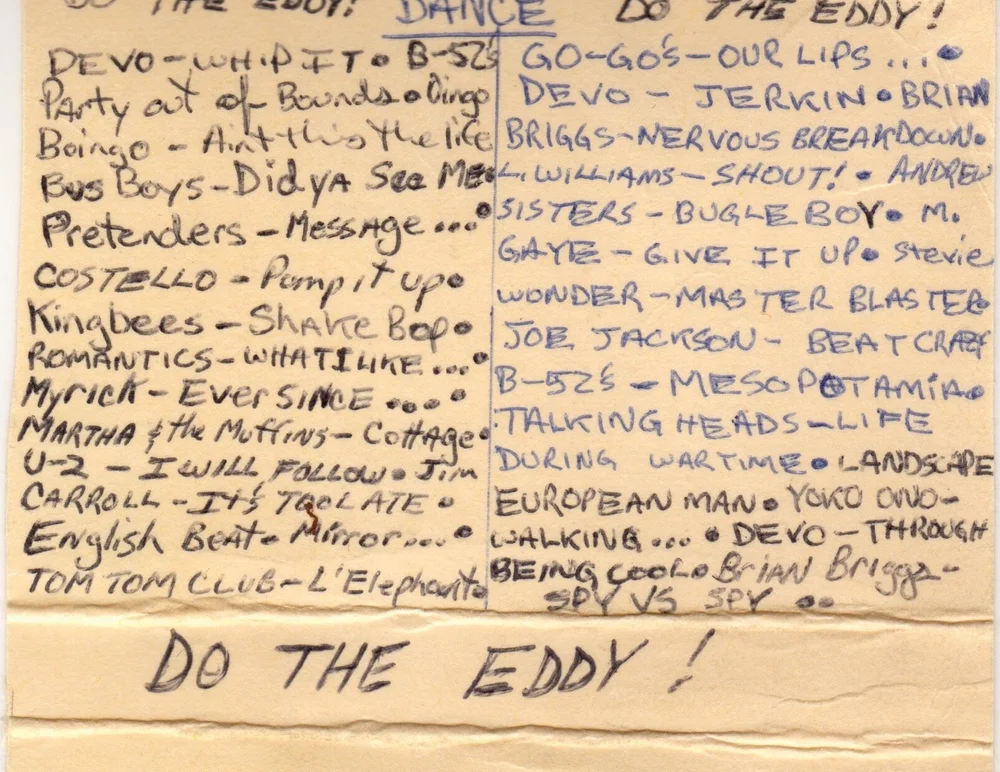 DO THE EDDY! DANCE DO THE EDDY!
DEVO-WHIP IT • B-52's
Party out of Bounds • Oingo
Boingo - Ain't this the life
Bus Boys - Did ya See Me •
Pretenders - Message ... •
COSTELLO - Pump it up •
Kingbees - Shake Bop •
ROMANTICS - WHAT I LIKE ... •
Myrick - Ever SINCE .... •
MARTHA & the Muffins - Cottage •
U-2 - I WILL FOLLOW • Jim
CARROLL - It's TOO LATE •
English Beat • Mirror.... •
TOM TOM CLUB - L'Elephant •
GO-GO's - OUR LIPS ... •
DEVO - JERKIN • BRIAN
BRIGGS-NERVOUS BREAKDOWN •
L. WILLIAMS - SHOUT! • ANDREW
SISTERS - BUGLE BOY • M.
GAYE - GIVE IT UP • Stevie
WONDER - MASTER BLASTER •
JOE JACKSON - BEAT CRAZY
B-52's - MESOPOTAMIA •
TALKING HEADS - LIFE
DURING WARTIME • LANDSCAPE
EUROPEAN MAN • YOKO ONO -
WALKING ... • DEVO - THROUGH
BEING COOL • Brian Briggs -
SPY VS SPY ••
DO THE EDDY!